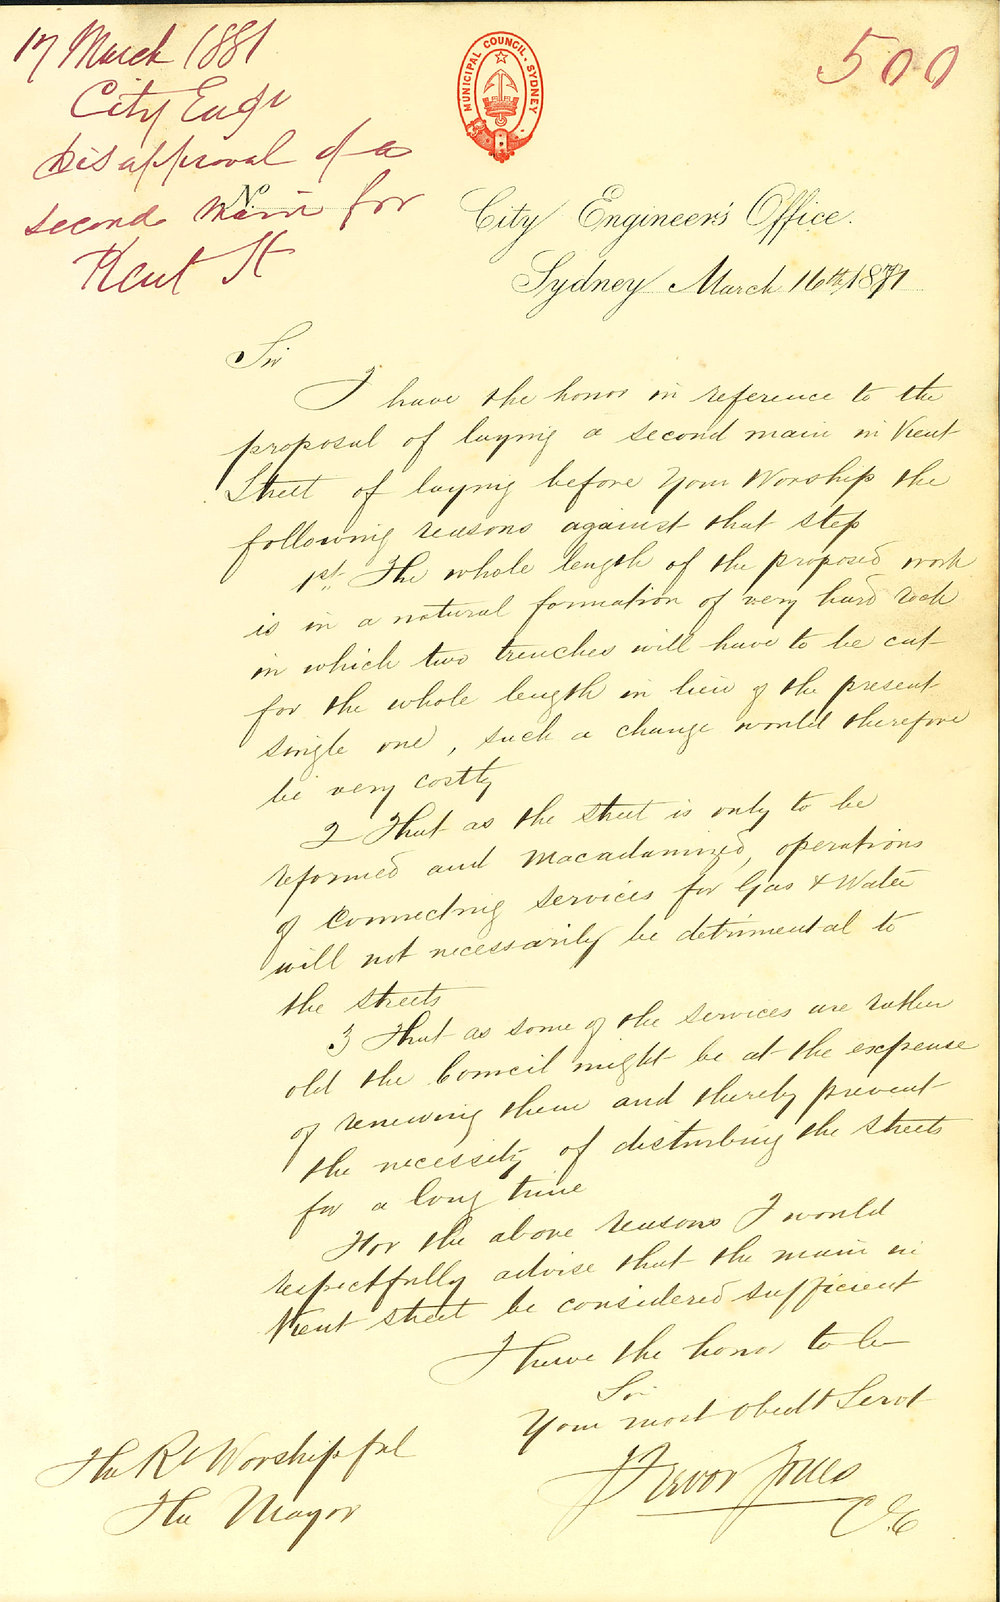 17 March 1881
City Engr
Disapproval of a
second main for
Kent St
500
MUNICIPAL COUNCIL. SYDNEY
No.
City Engineer's Office.
Sydney March 16th 1881
Sir
I have the honor in reference to the
proposal of laying a second main in Kent
Street of laying before Your Worship the
following reasons against that step
1st. The whole length of the proposed work
is in a natural formation of very hard rock
in which two trenches will have to be cut
for the whole length in lieu of the present
single one, such a change would therefore
be very costly
2 That as the street is only to be
reformed and macadamized, operations
of connecting services for Gas & Water
will not necessarily be detrimental to
the streets
3 That as some of the services are rather
old the Council might be at the expense
of renewing them and thereby prevent
the necessity of disturbing the streets
for a long time
For the above reasons I would
respectfully advise that the main in
Kent street be considered sufficient
I have the honor to be
Sir
Your most obedt Servt
Trevor Jones
C.E
The Rt Worshipful
The Mayor